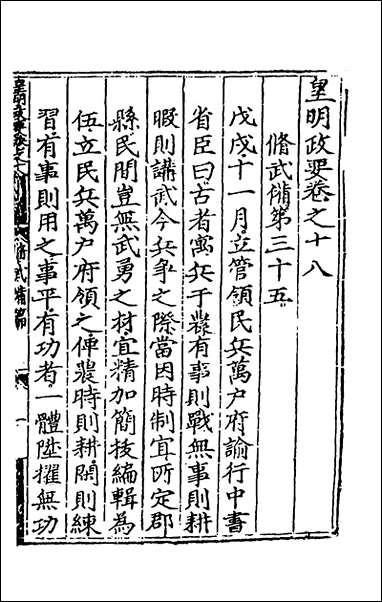 皇明政要卷之十八
脩武備第三十五
戊戌十一月立管領民兵萬户府諭行中書
省臣曰古者寓兵于農有事則戰無事則耕
暇則講武今兵爭之際當因時制宜所定郡
縣民間豈無武勇之材宜精加簡拔編輯為
伍立民兵萬户府領之俾農時則耕閑則練
習有事則用之事平有功者一體陞擢無功